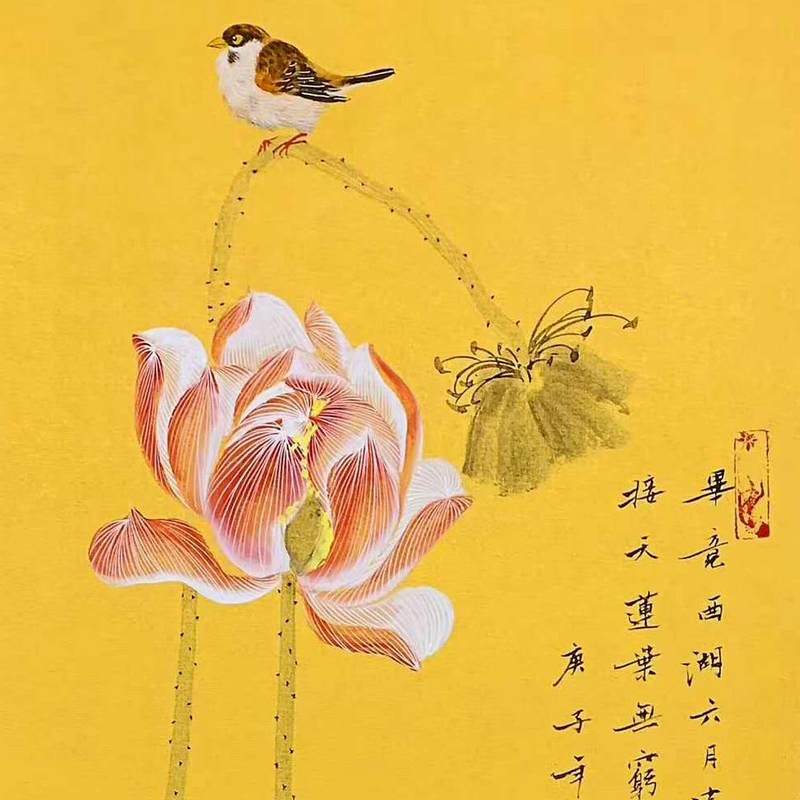 畢竟西湖六月
接天蓮葉無窮
庚子年